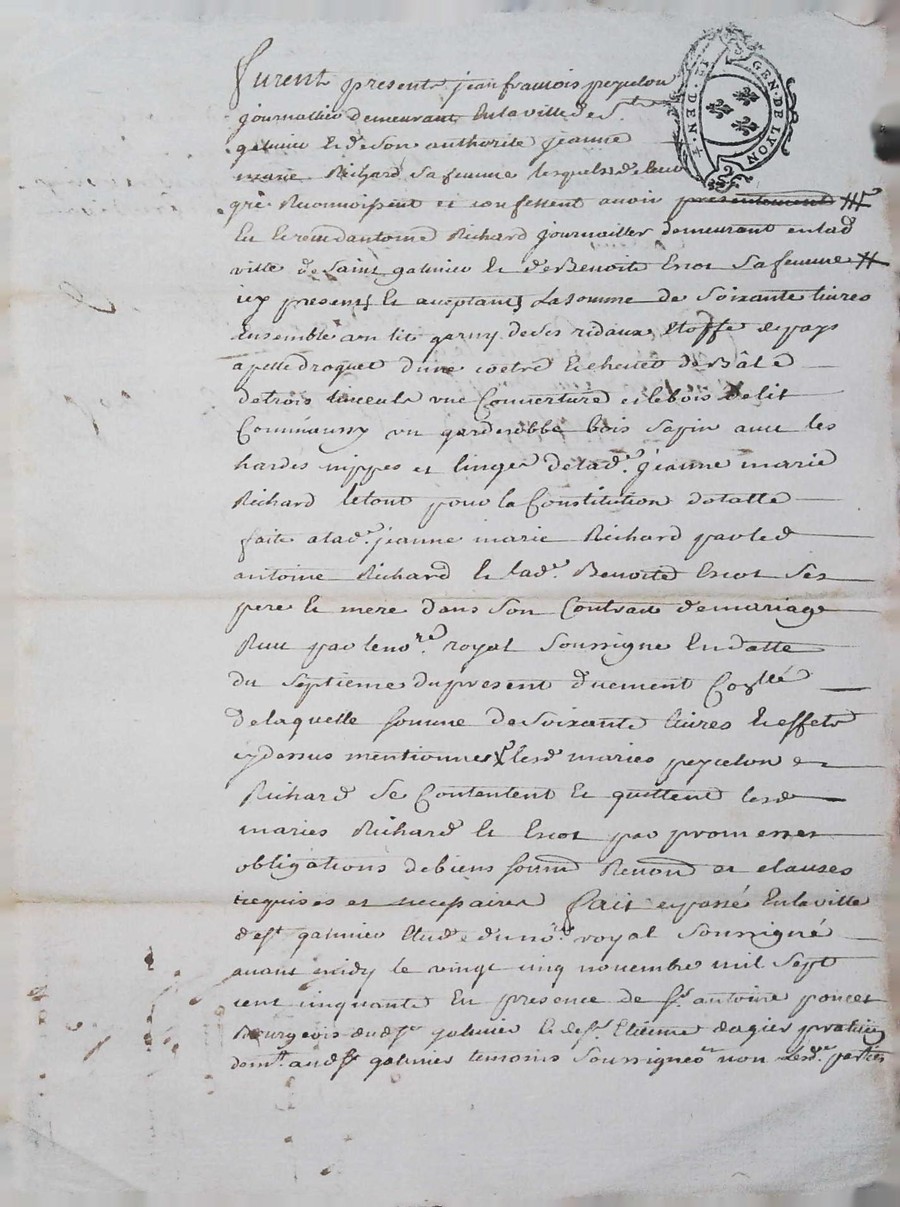 furent present jean francois peyrelon
journallier demeurant En la ville de St
galmier Et de Son authorité jeanne
marie Richard Sa femme lesquels de leur
gré Reconnoissent et confessent avoir presentement
Eu Et receu d'antoine Richard journaillier demeurant en lad
ville de Saint galmier Et de Benoite Escot Sa femme
icy presents Et aceptants La Somme de Soixante livres
Ensemble un lit garny de Ses ridaux Etoffe de pays
apellé droguet d'une coetre Et chevet de Balé
de trois linceuls une Couverture et le bois de lit
Comm'aussy un garderobbe bois Sapin avec les
hardes nippes et linges de lade. jeanne marie
Richard le tout pour la Constitution dotalle
faite a lade. jeanne marie Richard par led
antoine Richard Et lade. Benoite Escot Ses
pere Et mere dans Son Contrait de mariage
Receu par le nore. royal Soussigné En datte
du Septieme du present duement Collé
de laquelle Somme de Soixante livres Et effets
cy dessus mentionnes lesd maries peyrelon et
Richard Se Contentent Et quittent lesd
maries Richard Et Escot par promesses
obligations de biens Renond et clauses
requises et necessaires fait et passé En la ville
de St galmier Etude du nore. royal Soussigné
avant midy le vingt cinq novembre mil Sept
cent cinquante En presence de Sr. antoine poncet
Bourgeois dud St galmier Et de Sr. Etienne dagier praticien
demt. aud St galmier temoins Soussignes non lesd. parties
4 · DEN · 12
GEN · DE LYON